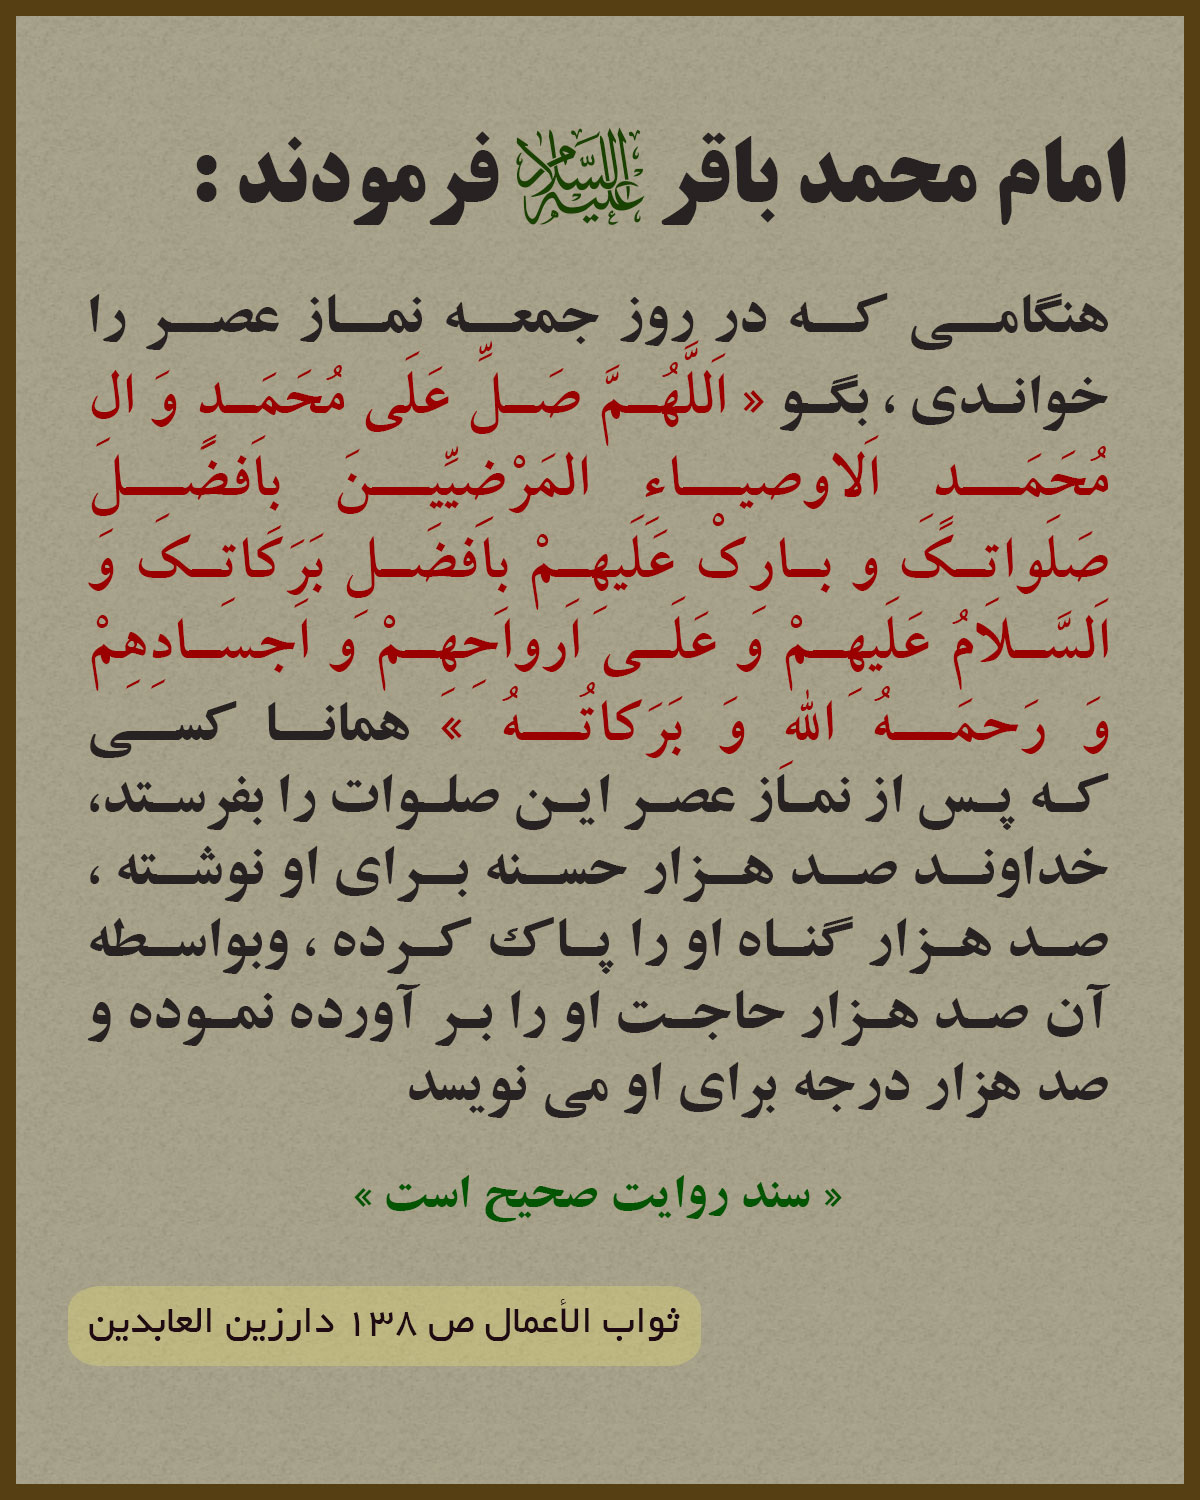 امام محمد باقر علیه السلام فرمودند :
هنگامی که در روز جمعه نماز عصر را
خواندی ، بگو « اَللَّهُمَّ صَلِّ عَلَی مُحَمَدٍ وَ ال
مُحَمَدٍ اَلاوصیاءِ المَرْضیِّینَ باَفضًلَ
صَلَواتکًَ و بارکْ عَلَیهِمْ باَفضَلِ بَرَکَاتِکَ وَ
اَلسَّلاَمُ عَلَیهِمْ وَ عَلَی اَرواَحِهِمْ وَ اَجسَادِهِمْ
وَ رَحمَهُ اللهِ وَ بَرَکاتُهُ » همانا کسی
که پس از نماز عصر این صلوات را بفرستد،
خداوند صد هزار حسنه برای او نوشته ،
صد هزار گناه او را پاک کرده ، وبواسطه
آن صد هزار حاجت او را بر آورده نموده و
صد هزار درجه برای او می نویسد
« سند روایت صحیح است »
ثواب الأعمال ص ۱۳۸ دارزین العابدین